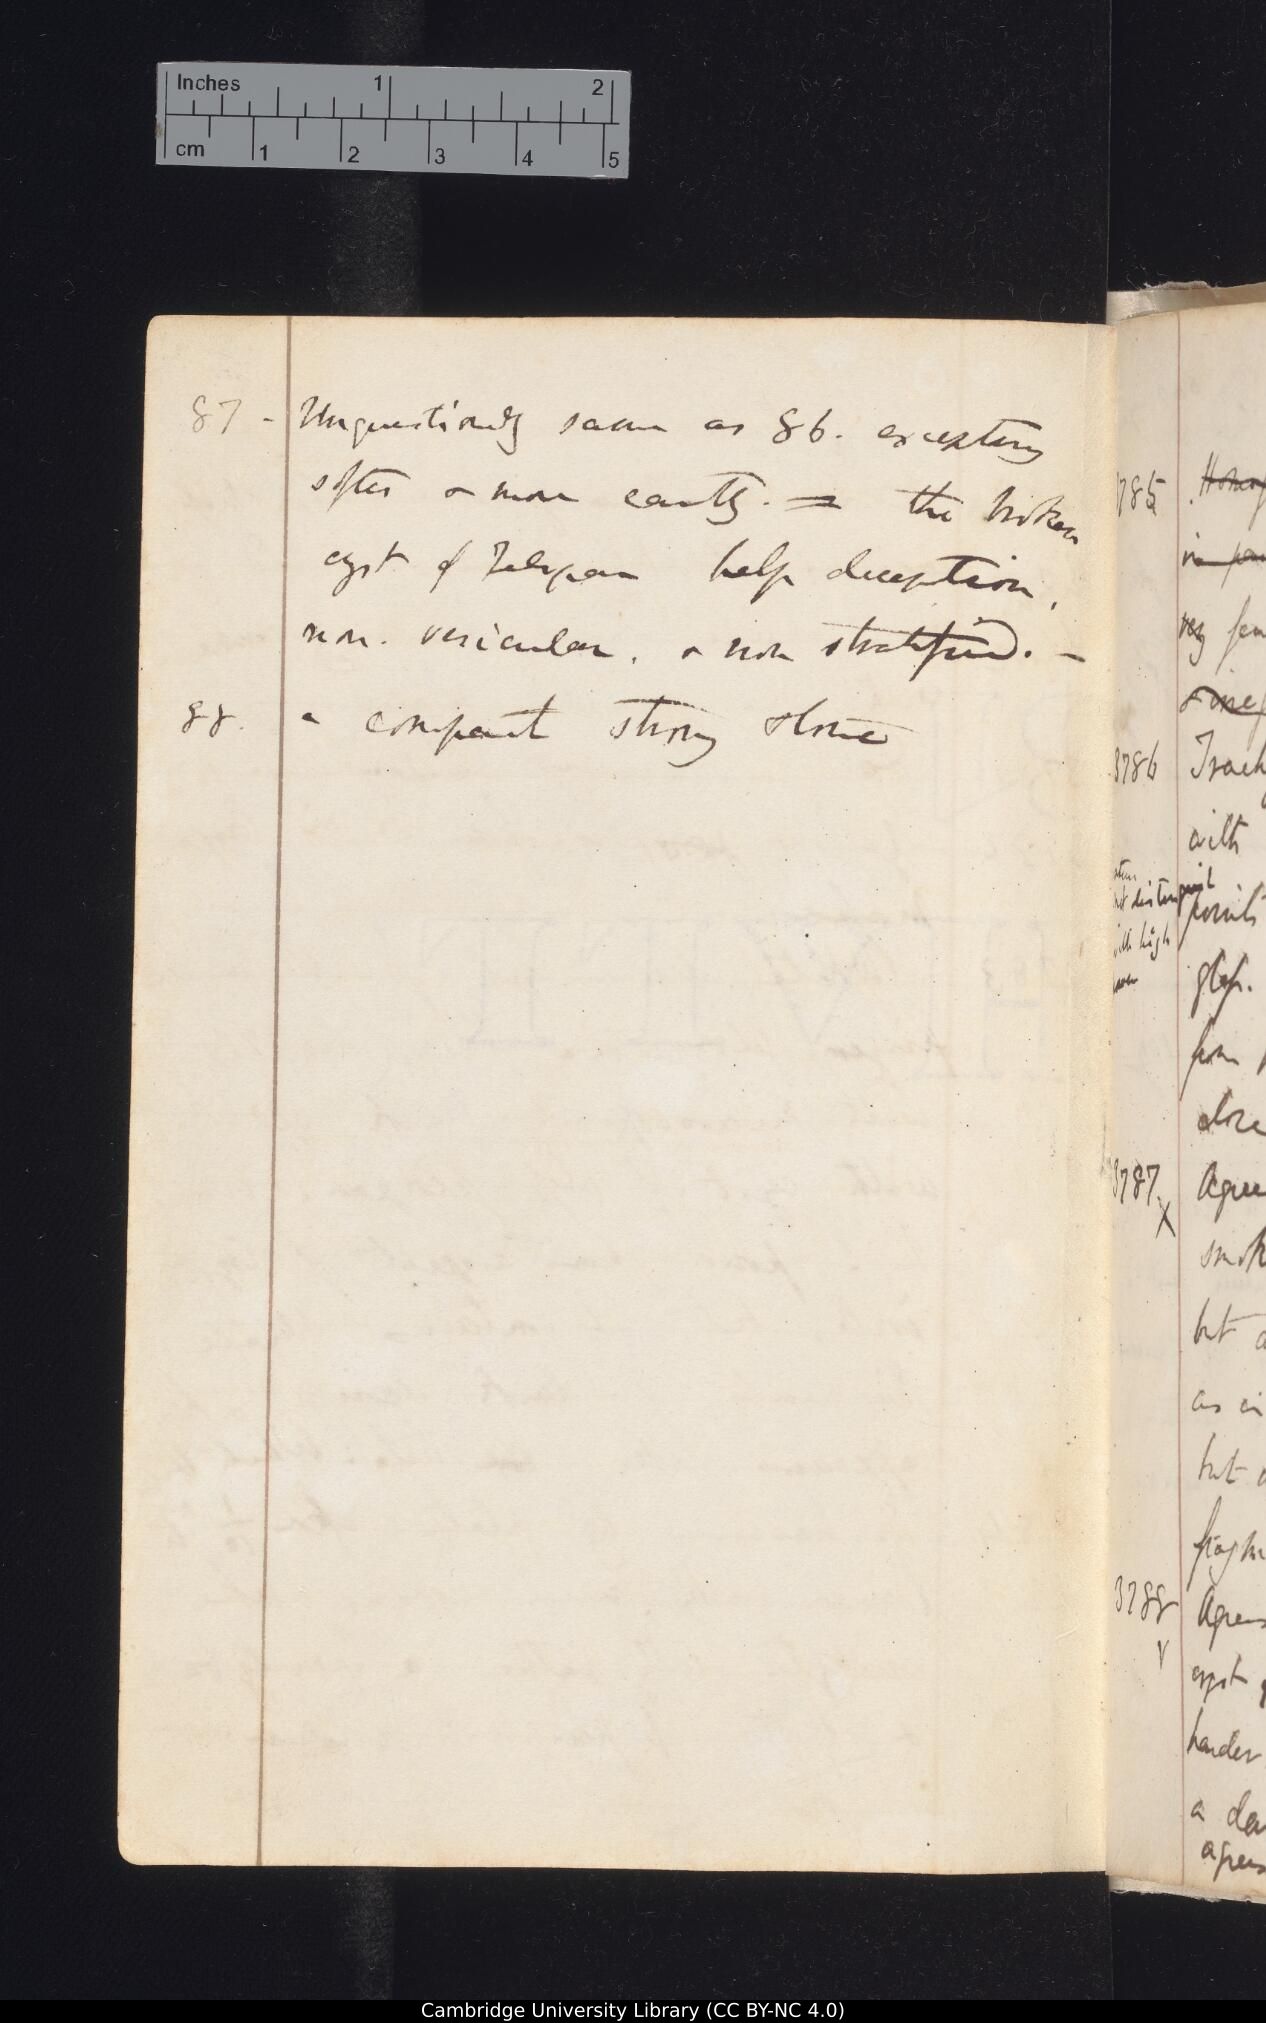 Inches 1 2
cm 1 2 3 4 5
87 - Unquestionably same as 86. excepting
softer & more earthy. = the broken
cryst of Felspar help deception,
non. vesicular. & non stratified. -
88. a compact strong stone
785
very few
3786 Trach
with
points
not disting
with high
power
glass.
from
3787 X Agree
smok
but a
as in
but
fragm
3788 Agrees
cryst
harder
a dar
agrees
Cambridge University Library (CC BY-NC 4.0)